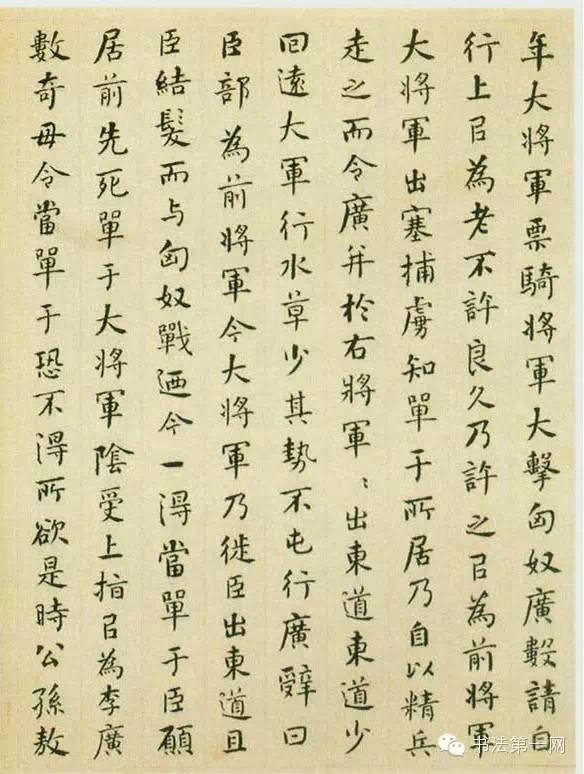 年大將軍票騎將軍大擊匈奴廣數請自
行上㠯為老不許良久乃許之㠯為前將軍
大將軍出塞捕虜知單于所居乃自以精兵
走之而令廣并於右將軍〻出東道東道少
回遠大軍行水草少其勢不屯行廣辤曰
臣部為前將軍今大將軍乃徙臣出東道且
臣結髮而与匈奴戰迺今一得當單于臣願
居前先死單于大將軍陰受上指㠯為李廣
數奇毋令當單于恐不得所欲是時公孫敖
书法第一网